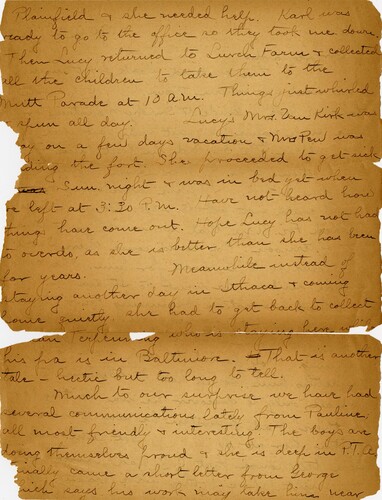 Plainfield & she needed help. Karl was
ready to go to the office so they took me down.
Then Lucy returned to Lurch Farm & collected
all the children to take them to the
Mutt Parade at 10 A.M. Things just whirled
& spun all day. Lucy's Mrs. Zen Kirk was
ay on a few days vacation & Mrs Pew was
ding the fort. She proceeded to get sick
Sun. night & was in bed yet when
we left at 3:30 P.M. Have not heard how
things have come out. Hope Lucy has not had
to overdo, as she is better than she has been
for years. Meanwhile instead of
staying another day in Ithaca & coming
home quietly she had to get back to collect
who is staying here while
his pa is in Baltimore. That is another
tale - hectic but too long to tell.
Much to our surprise we have had
several communications lately from Pauline,
all most friendly & interesting. The boys are
doing themselves proud & she is deep in P.T.A.
Finally came a short letter from George
which says his work may take him near